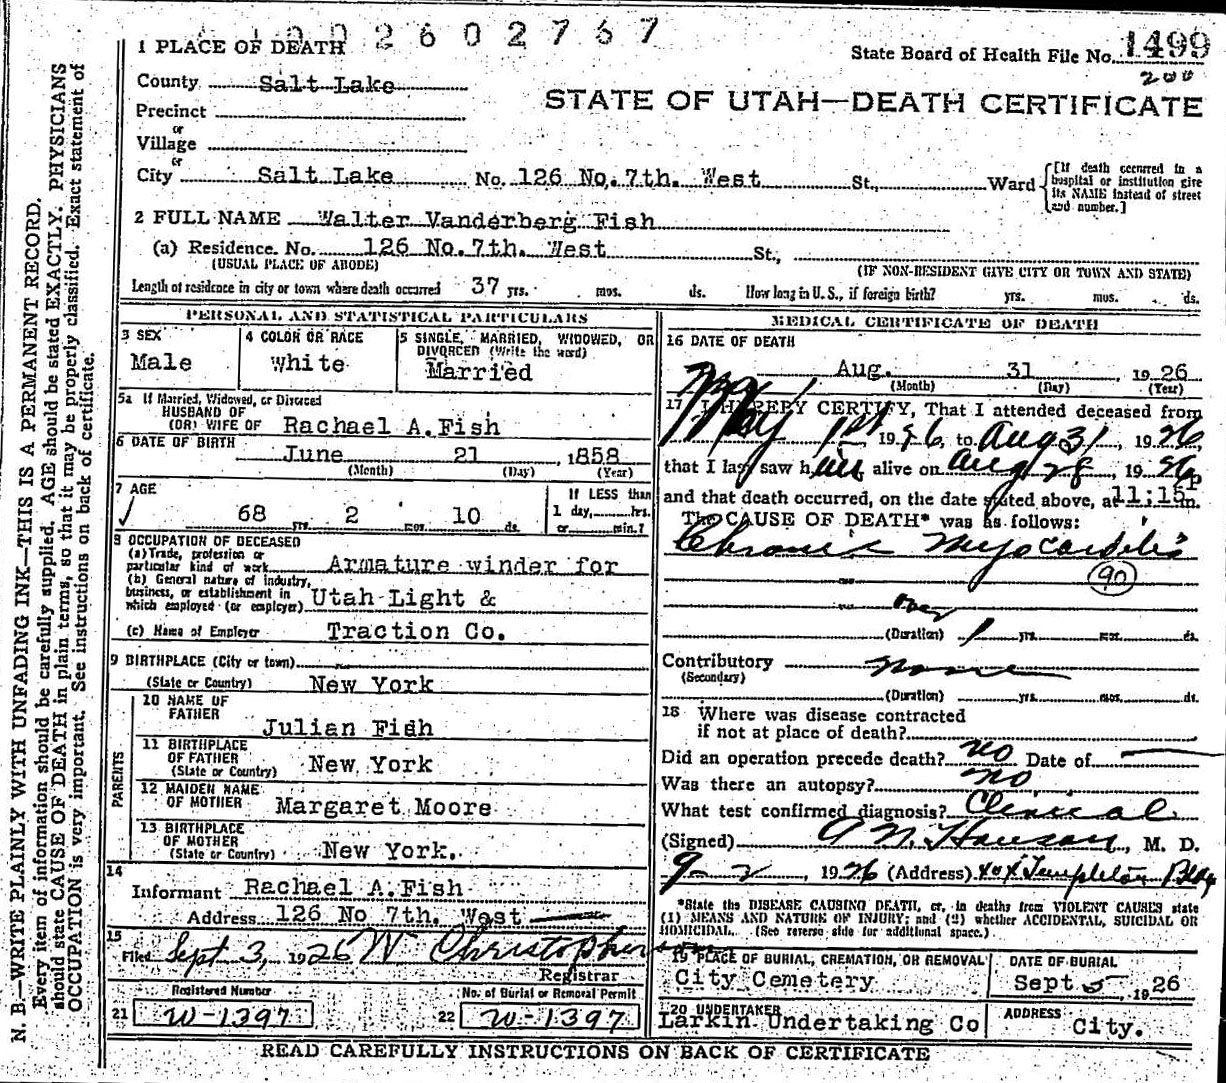 2602767
1 PLACE OF DEATH
State Board of Health File No. 1499
200
County Salt Lake
STATE OF UTAH—DEATH CERTIFICATE
Precinct
or
Village
or
City Salt Lake No. 126 No. 7th. West St., Ward [If death occurred in a hospital or institution give its NAME instead of street and number.]
2 FULL NAME Walter Vanderberg Fish
(a) Residence. No. 126 No. 7th. West St.,
(USUAL PLACE OF ABODE) (IF NON-RESIDENT GIVE CITY OR TOWN AND STATE)
Length of residence in city or town where death occurred 37 yrs. mos. ds. How long in U. S., if foreign birth? yrs. mos. ds.
PERSONAL AND STATISTICAL PARTICULARS
3 SEX
Male
4 COLOR OR RACE
White
5 SINGLE, MARRIED, WIDOWED, OR
DIVORCED (Write the word)
Married
5a If Married, Widowed, or Divorced
HUSBAND OF
(OR) WIFE OF Rachael A. Fish
6 DATE OF BIRTH
June 21 1858
(Month) (Day) (Year)
7 AGE
68 yrs 2 mos 10 ds.
If LESS than
1 day, hrs.
or min.?
8 OCCUPATION OF DECEASED
(a) Trade, profession or
particular kind of work Armature winder for
(b) General nature of industry,
business, or establishment in
which employed (or employer) Utah Light &
(c) Name of Employer Traction Co.
9 BIRTHPLACE (City or town)
(State or Country) New York
PARENTS
10 NAME OF
FATHER
Julian Fish
11 BIRTHPLACE
OF FATHER
(State or Country) New York
12 MAIDEN NAME
OF MOTHER Margaret Moore
13 BIRTHPLACE
OF MOTHER
(State or Country) New York.
14
Informant Rachael A. Fish
Address 126 No 7th. West
15
Filed Sept 3, 1926 W Christopherson
Registrar
Registered Number
21 W-1397
No. of Burial or Removal Permit
22 W-1397
MEDICAL CERTIFICATE OF DEATH
16 DATE OF DEATH
Aug. 31 1926
(Month) (Day) (Year)
May 1
17 I HEREBY CERTIFY, That I attended deceased from
May 1st 1926, to Aug 31, 1926
that I last saw him alive on Aug 28, 1926
and that death occurred, on the date stated above, at 11:15 P m.
The CAUSE OF DEATH* was as follows:
Chronic Myocarditis
90
over
(Duration) 1 yrs. mos. ds.
Contributory none
(Secondary)
(Duration) yrs. mos. ds.
18 Where was disease contracted
if not at place of death?
Did an operation precede death? no Date of
Was there an autopsy? no
What test confirmed diagnosis? Clinical
(Signed) M. D.
9-2, 1926 (Address) 404 Templeton Bldg
*State the DISEASE CAUSING DEATH, or, in deaths from VIOLENT CAUSES state
(1) MEANS AND NATURE OF INJURY; and (2) whether ACCIDENTAL, SUICIDAL OR
HOMICIDAL. (See reverse side for additional space.)
19 PLACE OF BURIAL, CREMATION, OR REMOVAL
City Cemetery
DATE OF BURIAL
Sept 5, 1926
20 UNDERTAKER
Larkin Undertaking Co
ADDRESS
City.
READ CAREFULLY INSTRUCTIONS ON BACK OF CERTIFICATE
N. B.—WRITE PLAINLY WITH UNFADING INK—THIS IS A PERMANENT RECORD.
Every item of information should be carefully supplied. AGE should be stated EXACTLY. PHYSICIANS
should state CAUSE OF DEATH in plain terms, so that it may be properly classified. Exact statement of
OCCUPATION is very important. See instructions on back of certificate.